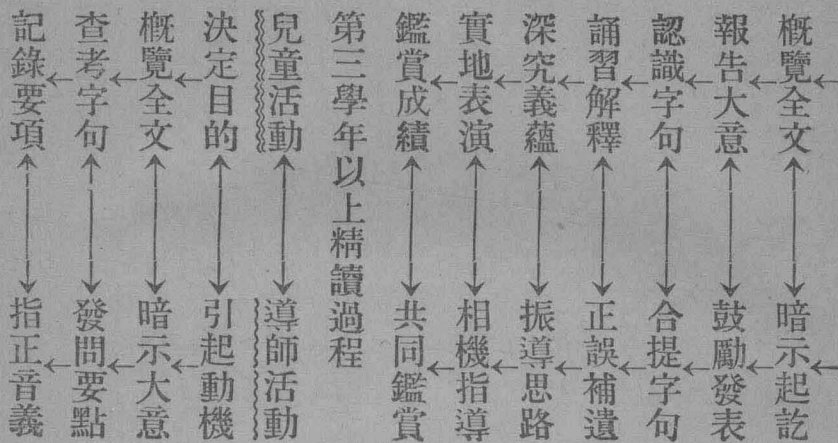 概覽全文 暗示起訖
報告大意 鼓勵發表
認識字句 合提字句
誦習解釋 正誤補遺
深究義蘊 振導思路
實地表演 相機指導
鑑賞成績 共同鑑賞
第三學年以上精讀過程
兒童活動 導師活動
決定目的 引起動機
概覽全文 暗示大意
查考字句 發問要點
記錄要項 指正音義